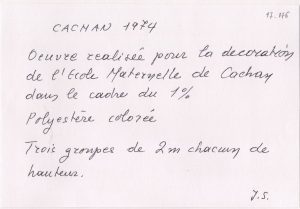 13.176
CACHAN 1974
Oeuvre realisée pour la decoration
de l'Ecole Maternelle de Cachan
dans le cadre du 1%
Polyestère colorée
Trois groupes de 2m chacun de
hauteur.
J.S.